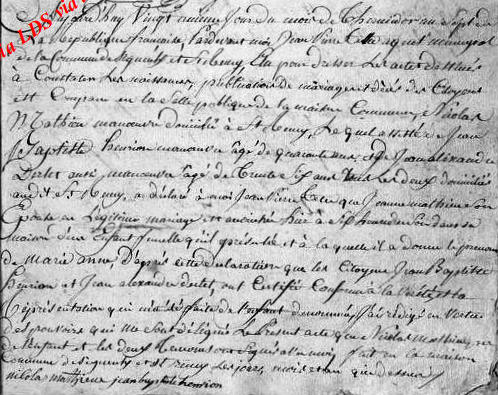 aujourd'huy vingt neuvieme jour du mois de Thermidor an sept de
La Republique francaise, pardevant moi Jean Pierre agent municipal
de la Commune de et St Remy Elu pour dresser Les actes destinés
a Constater Les naissances, publication de mariage et décés des Citoyens
Est Comparu en La Salle publique de la maison Commune, Nicolas
Mathieu manoeuvre domicilié a St Remy, Lequel assisté de Jean
Baptiste henrion manoeuvre agé de quarante et de Jean alexandre
Derlet aussi manoeuvre agé de trente Six ans Les deux domiciliés
audit St Remy, a déclaré a moi Jean Pierre que Jeanne mathieu Son
Epouse en Légitime mariage est accouchée hier a Six heures du Soir dans sa
maison d'un Enfant femelle qu'il ma présenté et a laquelle il a donné Le prenom
de Marie anne, D'après cette declaration que les Citoyens Jean Baptiste
henrion et Jean alexandre derlet, ont Certifié Conforme a la vérité, et La
représentation qui m'a été faite de l'enfant denommé, J'ai rédigé en vertu
des pouvoirs qui me sont délégués Le Présent acte que Nicolas Mathieu, père
de l'enfant et les deux temoins ont Signés avec moi, fait en la maison
Commune de et St remy Les jour, mois et an que dessus
nicolas matthieu jean baptiste henrion
la LDS via